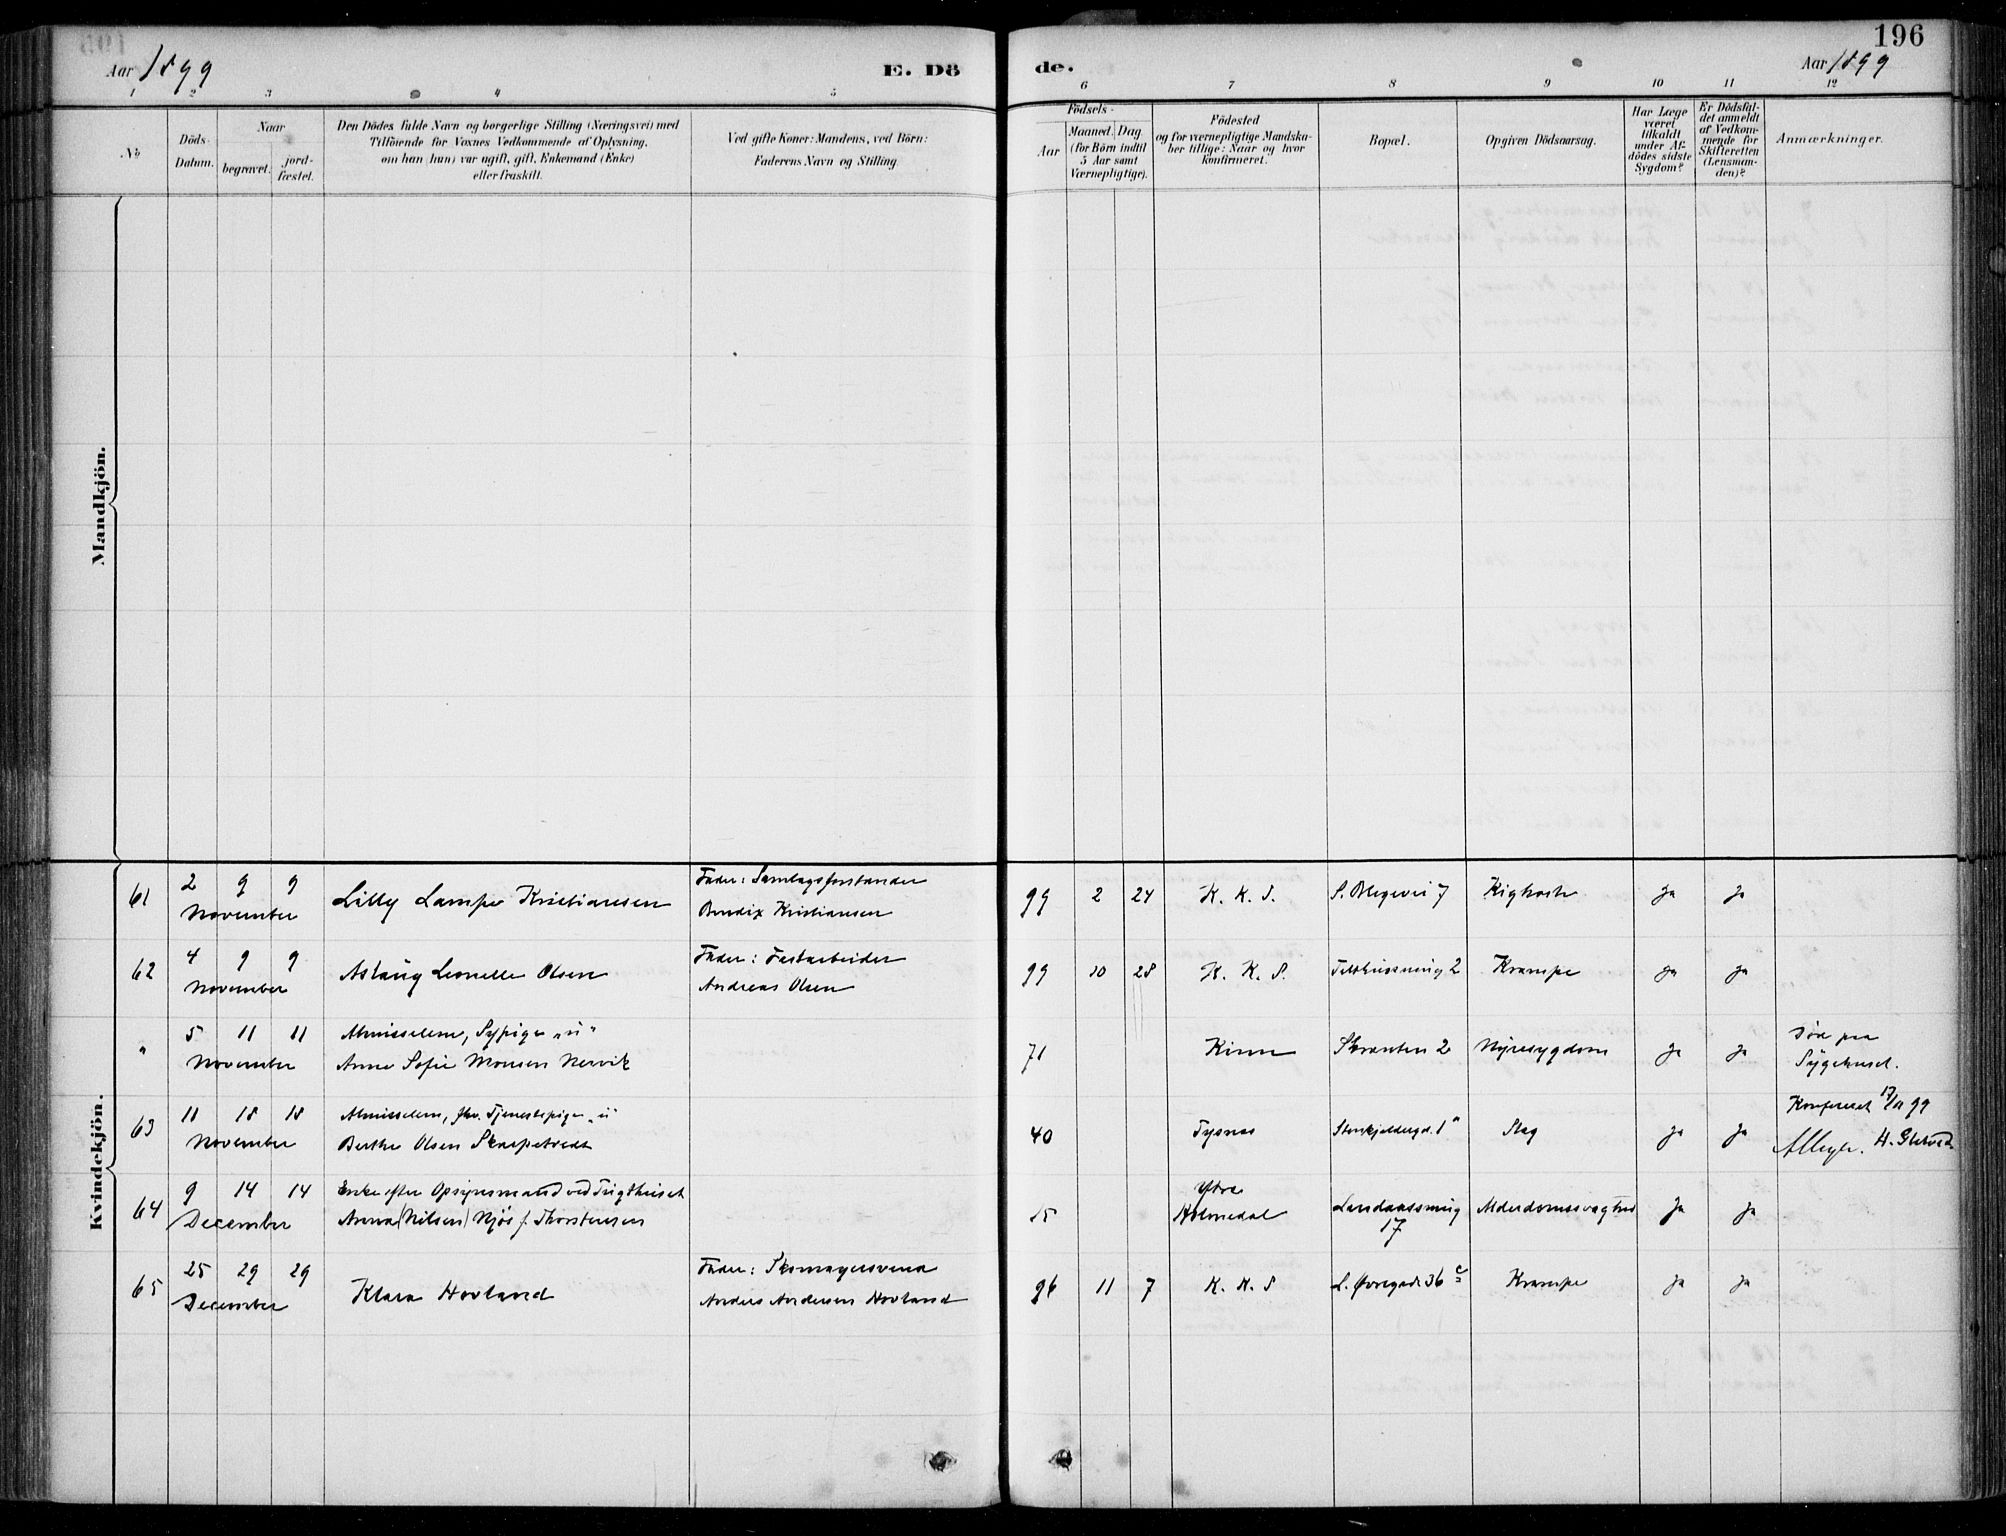 196
Aar 1899
E. Dö
de.
Aar 1899
1 2 3 4 5 6 7 8 9 10 11 12
No
Döds-
Datum.
Naar
begravet.
jord-
fæstet.
Den Dödes fulde Navn og borgerlige Stilling (Næringsvei) med
Tilföiende for Voxnes Vedkommende af Oplysning,
om han (hun) var ugift, gift, Enkemand (Enke)
eller fraskilt.
Ved gifte Koner: Mandens, ved Börn:
Faderens Navn og Stilling.
Födsels-
Aar
Maaned. Dag
(for Börn indtil
5 Aar samt
Værnepligtige).
Födested
og for værnepligtige Mandska-
ber tillige: Naar og hvor
konfirmeret.
Bopæl.
Opgiven Dödsaarsag.
Har Læge
været
tilkaldt
under Af-
dödes sidste
Sygdom?
Er Dödsfal-
det anmeldt
af Vedkom-
mende for
Skifteretten
(Lensman-
den)?
Anmærkninger.
Mandkjön.
Kvindekjön.
61 2 9 9
November
Lilly Lampe Kristiansen
Fader: Samlagsforstander
Bendix Kristiansen
99 2 24 K. K. S. S. Blegevei 7 Kighoste Ja Ja
62 4 9 9
November
Aslaug Leonelle Olsen
Fader: Fastarbeider
Andreas Olsen
99 10 28 K. K. S. 2 Krampe Ja Ja
" 5 11 11
November
Almisselem, Sypige „ú"
Anne Sofie Monsen Nervik
71 Kinn Skranten 2 Nyresygdom Ja Ja
Död paa
Sygehuset.
63 11 18 18
November
Almisselem, fhv. Tjenestepige „ú"
Berthe Olsen Skarpetvedt
40 Tysnes Stenkjeldergd. 1a Slag Ja Ja
Konfereret 17/11 99
64 9 14 14
December
Enke efter Opsynsmand ved Tugthuset
Anna (Nilsen) Njös f. Thorstensen
15 Ytre
Holmedal
Landaassmug
17
Alderdomssvaghed Ja Ja
65 25 29 29
December
Klara Hovland
Fader: Skomagersvend
Anders Andersen Hovland
96 11 7 K. K. S L. Øvregade 36 c Krampe Ja Ja